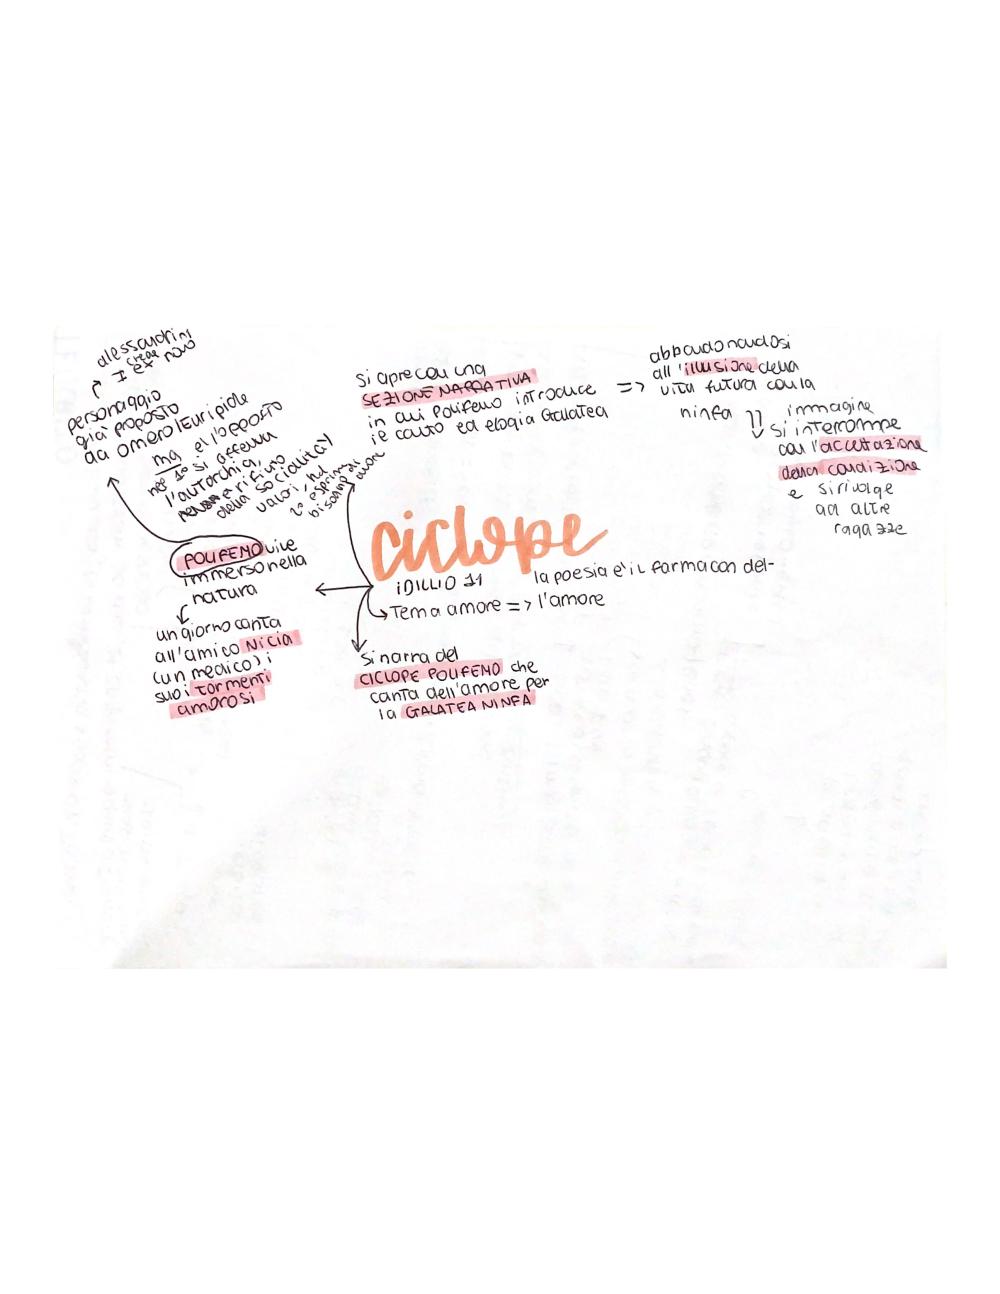 alessandrini
I creare
ex novo
personaggio
già proposto
da omero/Euripide
ma è l'opposto
nel 1° si afferma
l'autarchia,
e rifiuto
della socialità/
valori, nel
2° esprime
bisogno di
amore
POLIFEMO vive
immerso nella
natura
un giorno canta
all'amico NICIA
(un medico) i
suoi tormenti
amorosi
si apre con una
SEZIONE NARRATIVA
in cui Polifemo introduce
il canto ed elogia Galatea
=> abbandonandosi
all'illusione della
vita futura con la
ninfa
immagine
si interrompe
con l'accettazione
della condizione
e si rivolge
ad altre
ragazze
ciclope
IDILLIO 11
Tema amore => la poesia è il farmacon del-
l'amore
si narra del
CICLOPE POLIFEMO che
canta dell'amore per
la GALATEA NINFA